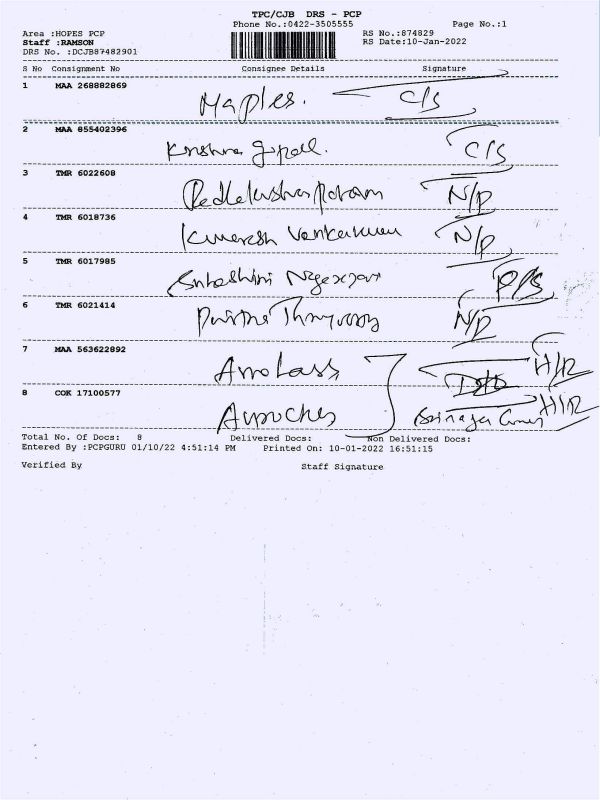 TPC/CJB DRS - PCP
Phone No.:0422-3505555 Page No.:1
Area :HOPES PCP RS No.:874829
Staff :RAMSON RS Date:10-Jan-2022
DRS No. :DCJB87482901
S No Consignment No Consignee Details Signature
1 MAA 268882869 Maples. C/S
2 MAA 855402396 Krishna gopall. C/S
3 TMR 6022608 N/P
4 TMR 6018736 N/P
5 TMR 6017985 Subashini P/S
6 TMR 6021414 N/P
7 MAA 563622892 H/R
8 COK 17100577 H/R
Total No. Of Docs: 8 Delivered Docs: Non Delivered Docs:
Entered By :PCPGURU 01/10/22 4:51:14 PM Printed On: 10-01-2022 16:51:15
Verified By Staff Signature